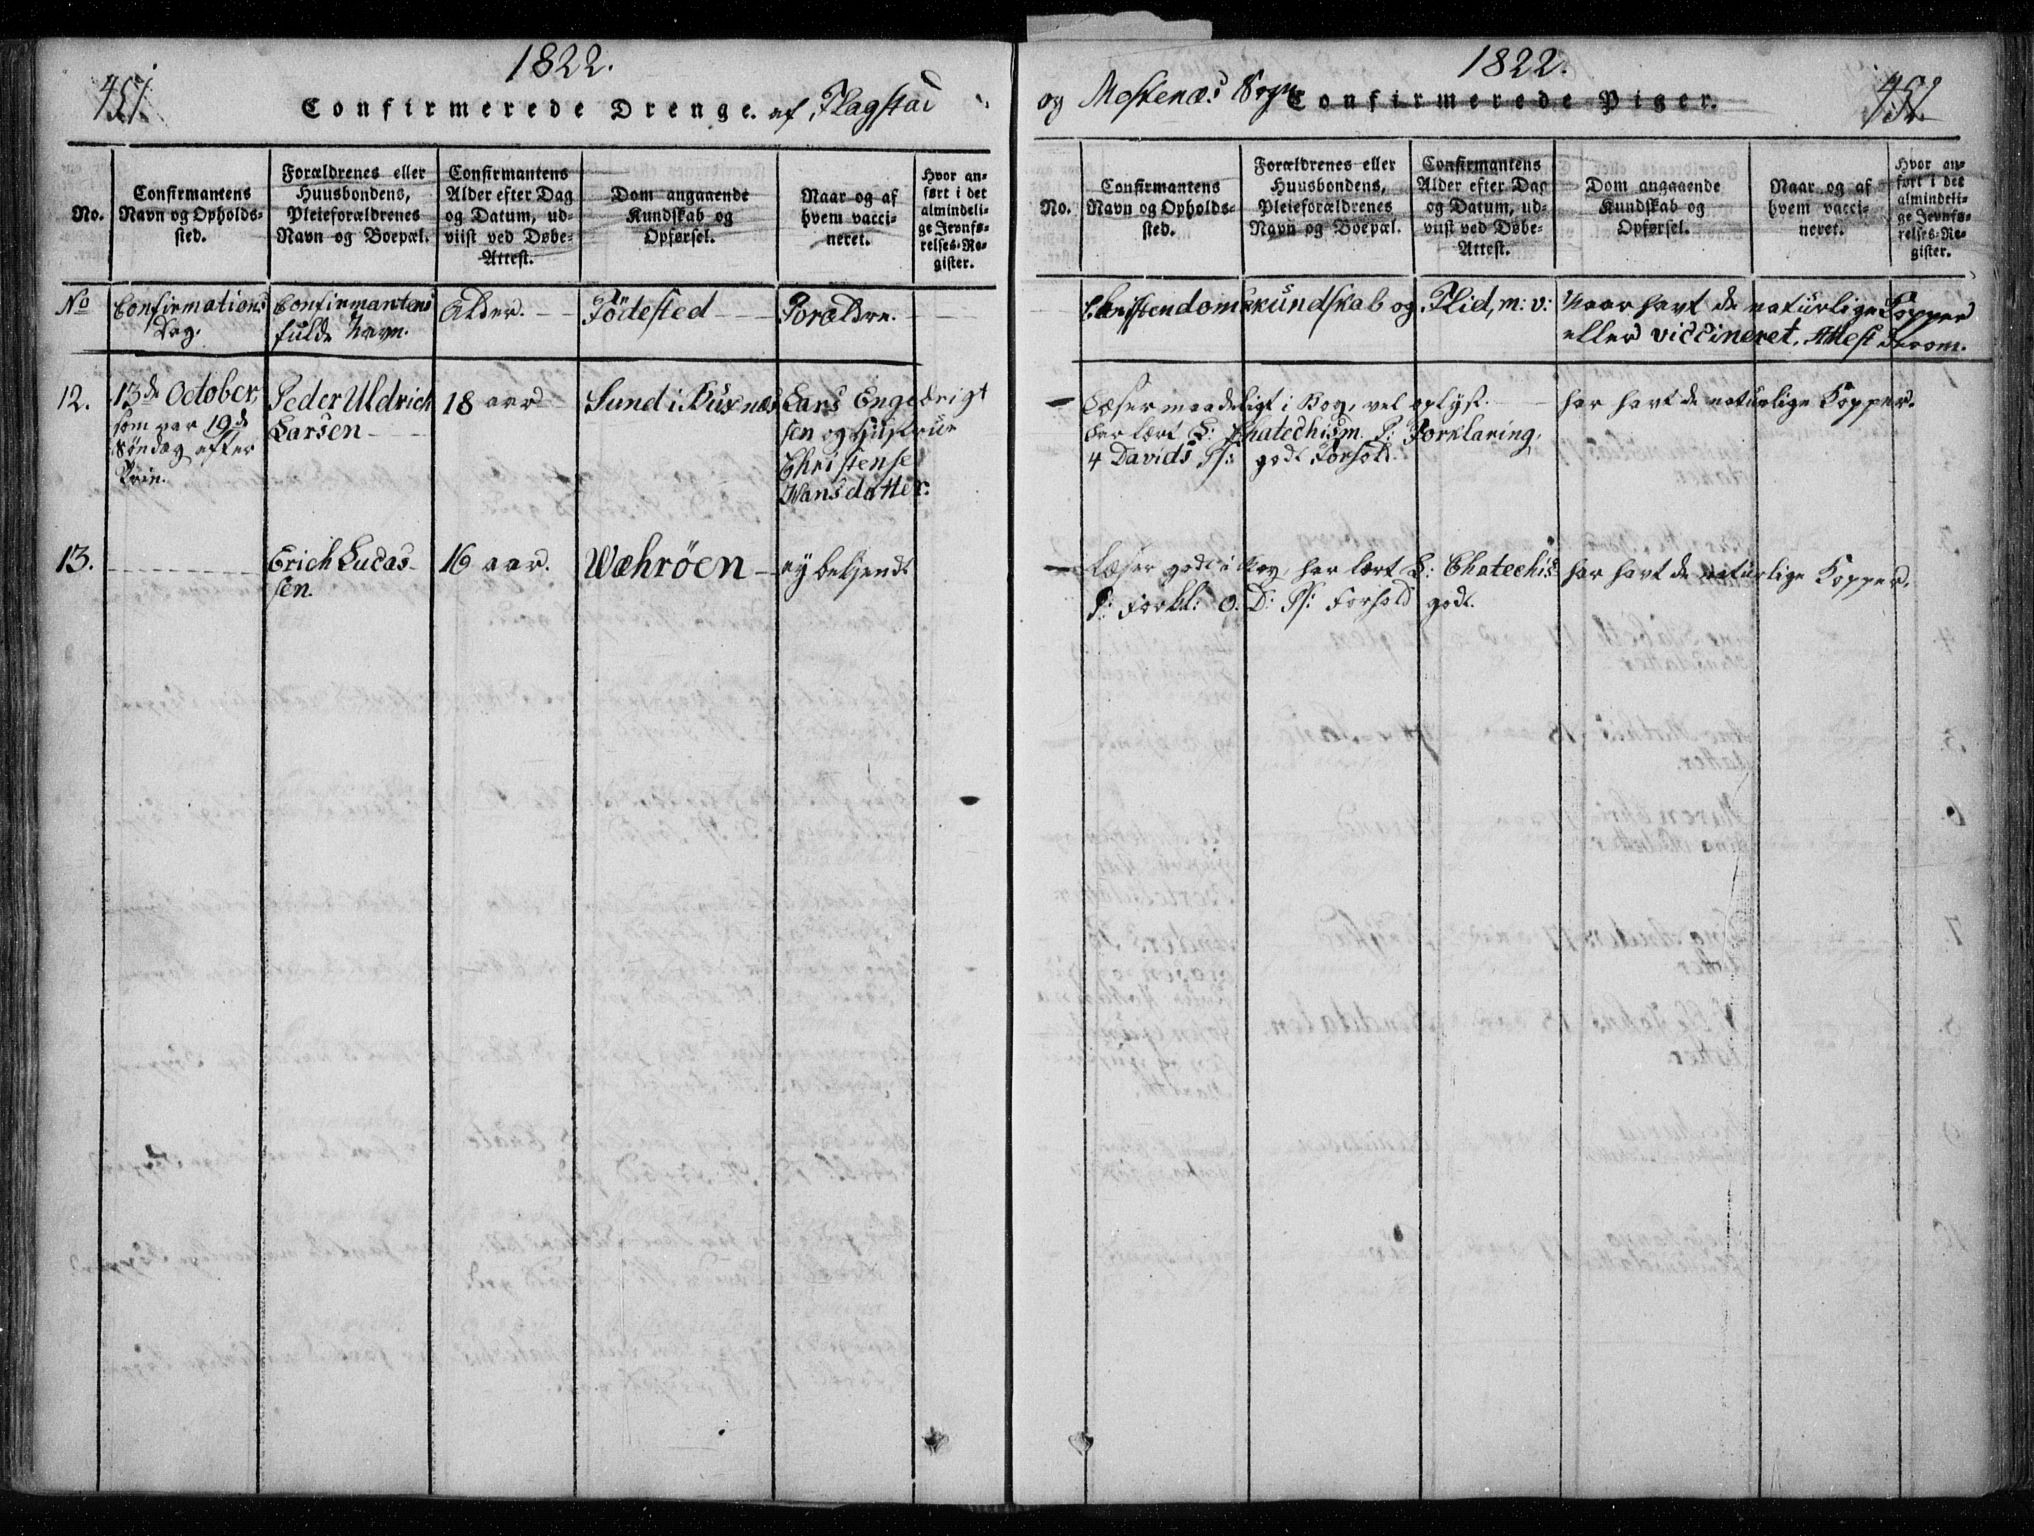 1822.
451.
Confirmerede Drenge. af Flagstad
No.
Confirmantens
Navn og Opholds-
sted.
Forældrenes eller
Huusbondens,
Pleieforældrenes
Navn og Boepæl.
Confirmantens
Alder efter Dag
og Datum, ud-
viist ved Døbe-
Attest.
Dom angaaende
Kundskab og
Opførsel.
Naar og af
hvem vacci-
neret.
Hvor an-
ført i det
almindeli-
ge Jevnfø-
relses-Re-
gister.
No
Confirmations
Dag.
Confirmantens
fulde Navn.
Alder.
Födested
Forældre.
12.
13de October,
som var 19de
Søndag efter
Trin.
Peder Uldrich
Larsen
18 aar
Sund i Buxnæs
Lars Engebrigt
sen og Hustrue
Christense
Hansdatter.
13.
Erich Lucas-
sen.
16 aar.
Wæhröen
ey bekjendt
1822.
452.
og Moskenæs Sogn
Confirmerede Piger.
No.
Confirmantens
Navn og Opholds-
sted.
Forældrenes eller
Huusbondens,
Pleieforældrenes
Navn og Boepæl.
Confirmantens
Alder efter Dag
og Datum, ud-
viist ved Døbe-
Attest.
Dom angaaende
Kundskab og
Opførsel.
Naar og af
hvem vacci-
neret.
Hvor an-
ført i det
almindeli-
ge Jevnfø-
relses-Re-
gister.
Christendomskundskab og Flid, m: v:
Naar havt de naturlige Kopper
eller viccineret, Attest derom.
Læser maadeligt i Bog, vel oplyst.
har lært L: Chatechism. P: Forklaring,
4 Davids Ps: godt Forhold.
har havt de naturlige Kopper.
Læser godt i Bog, har lært L: Chatechis
P: Forkl: o. D: Ps: Forhold godt.
har havt de naturlige Kopper.